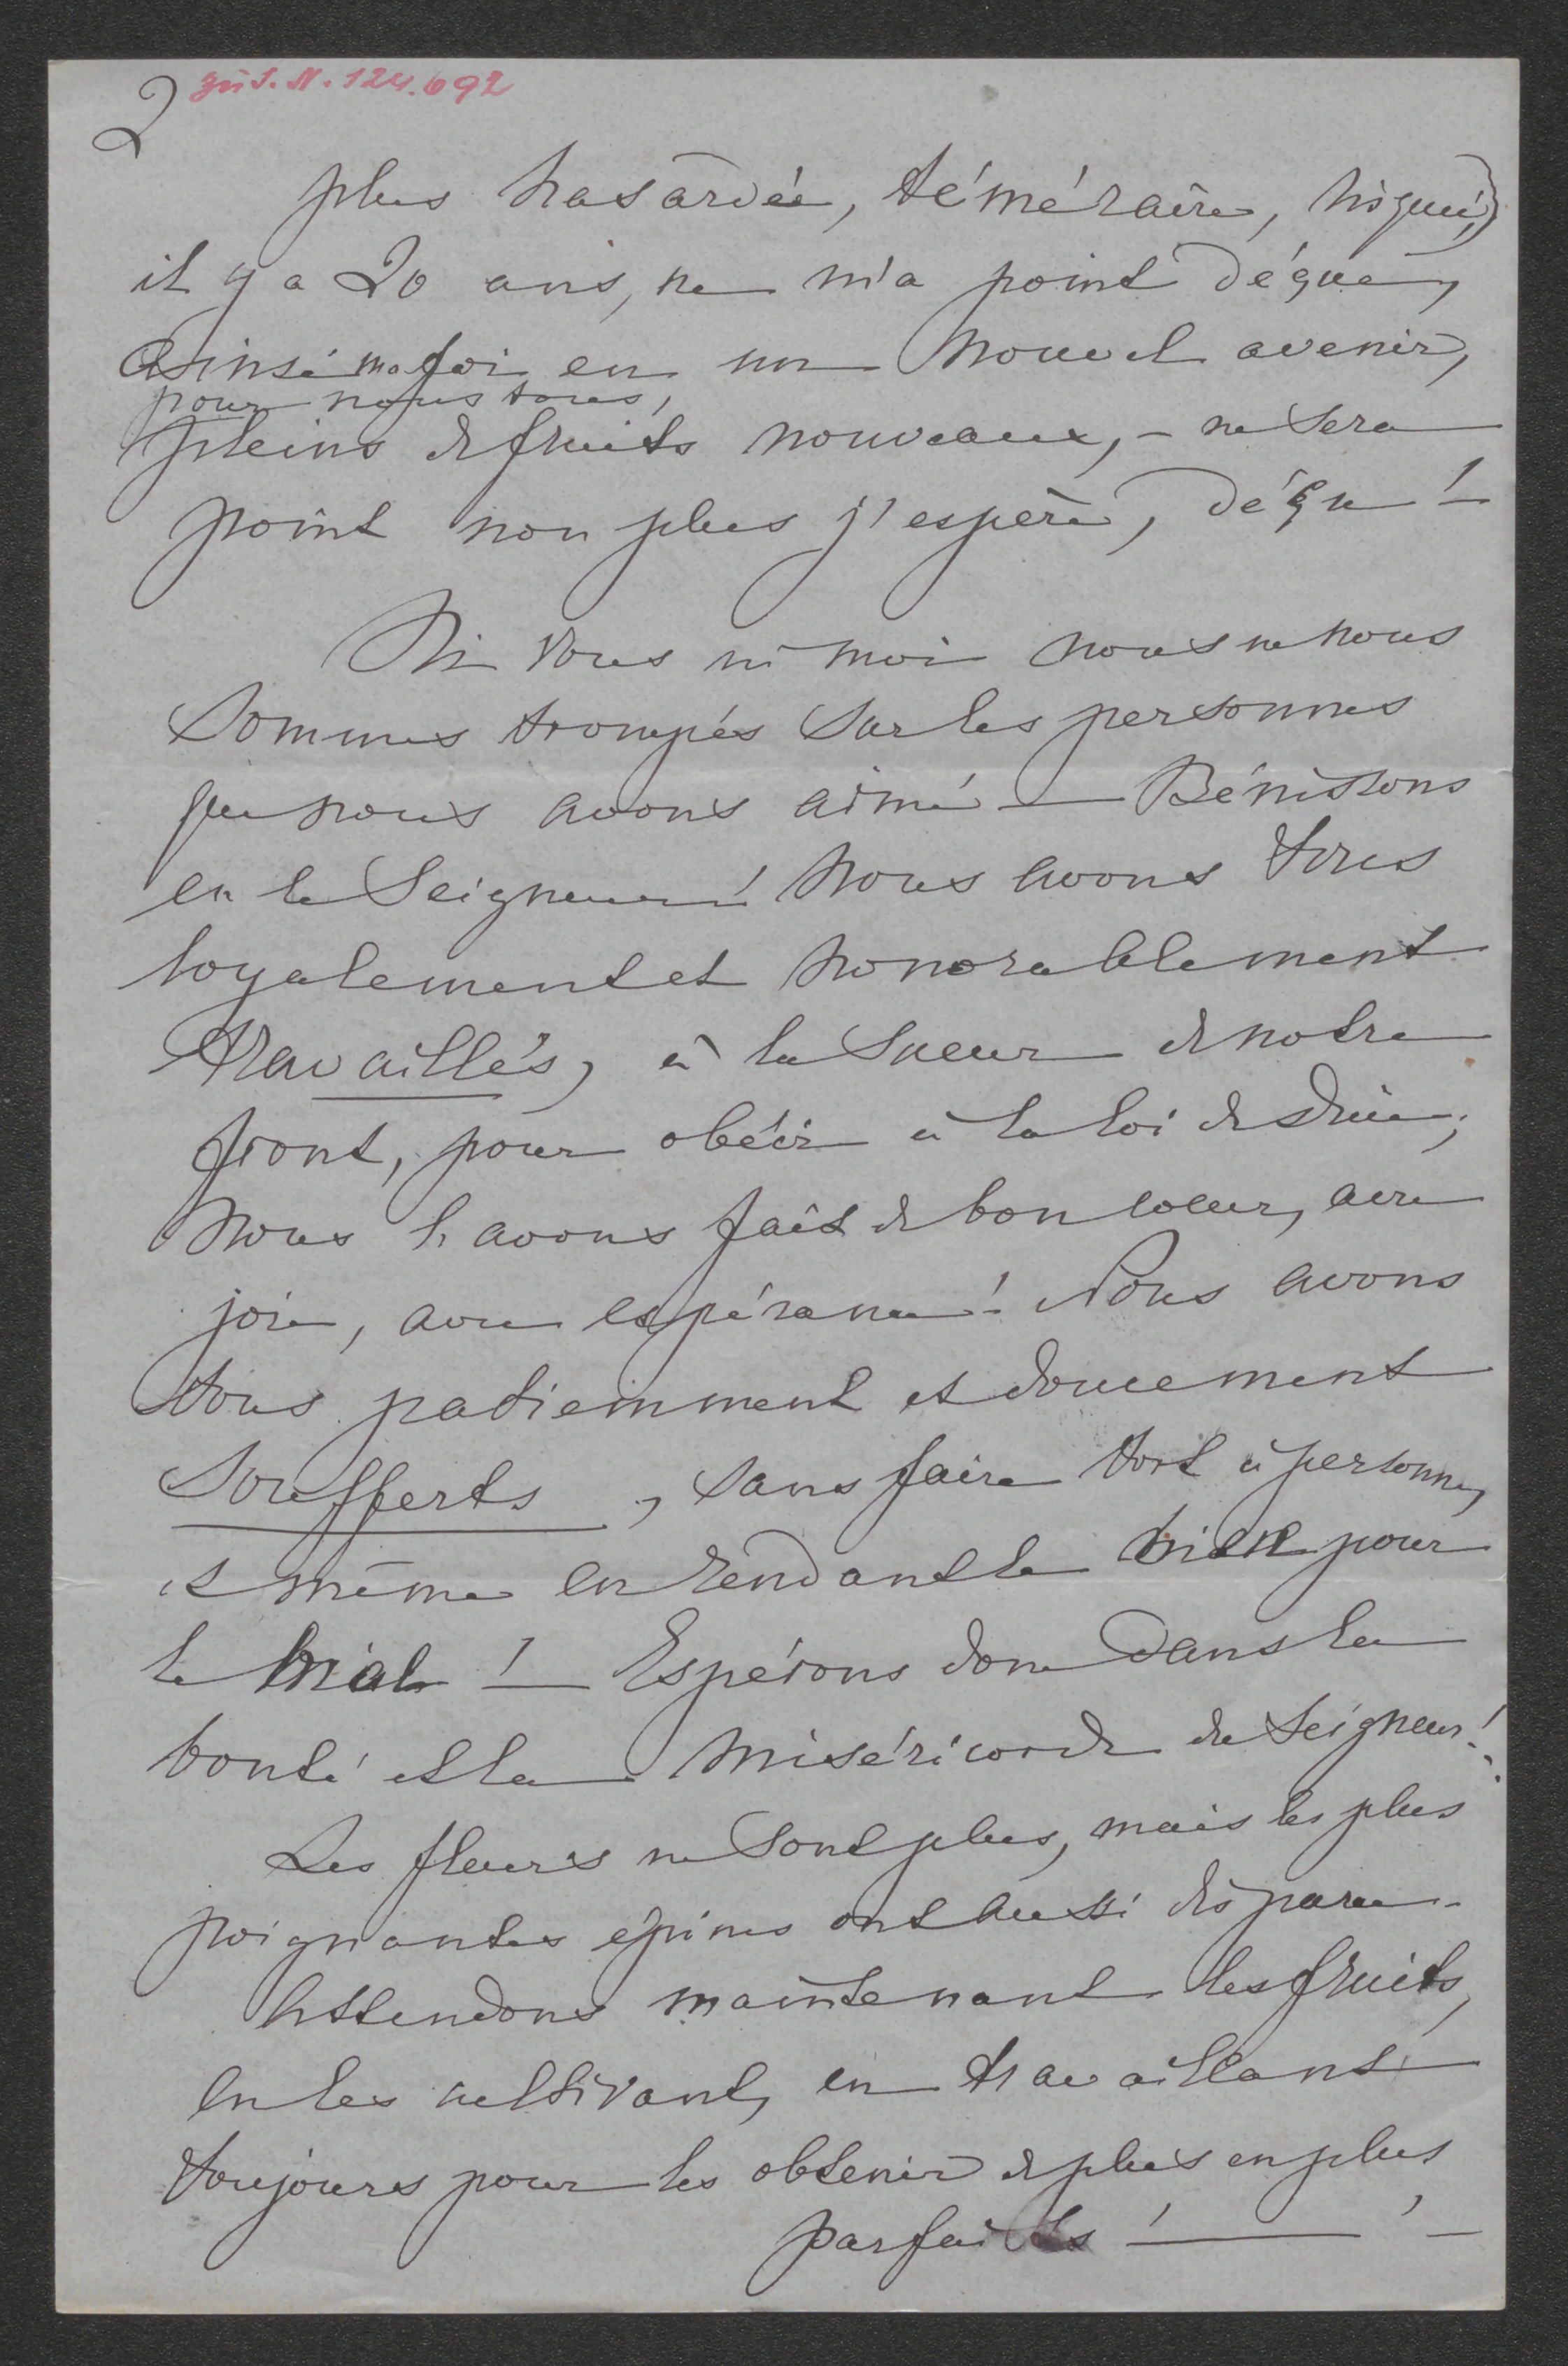 2 zu I. N. 124.692
plus hasardée, téméraire, risquée)
il y a 20 ans, ne m'a point déçue,
Ainsi ma foi en un nouvel avenir,
pour nous tous,
pleins de fruits nouveaux, – ne sera
point non plus j'espère, déçu! –
Ni vous ni moi nous ne nous
sommes trompés sur les personnes
que nous avons aimé – Bénissons
en le Seigneur! Nous avons tous
loyalement et honorablement
travaillés, à la sueur de notre
front, pour obéir à la loi de Dieu;
Nous l'avons fait de bon coeur, avec
joie, avec espérance! Nous avons
tous patiemment et doucement
soufferts, sans faire tort à personne,
et même en rendant le bien pour
le mal! – Espérons donc dans la
bonté et la miséricorde du Seigneur!..
Les fleurs ne sont plus, mais les plus
poignantes épines ont aussi disparu –
Attendons maintenant les fruits,
en les cultivant, en travaillant
toujours pour les obtenir de plus en plus
parfaits! – ! –